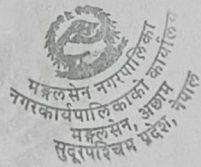 मङ्गलसेन नगरपालिका
नगरकार्यपालिकाको कार्यालय
मङ्गलसेन, अछाम
सुदूरपश्चिम प्रदेश, नेपाल